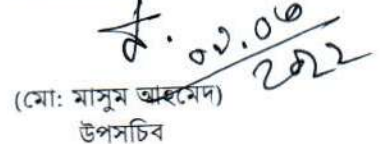 ০২.০৬
২০২২
(মো: মাসুম আহমেদ)
উপসচিব